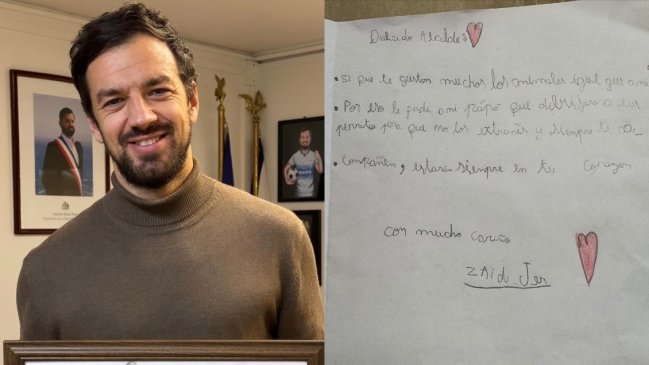 Querido Alcalde:
• Se que te gustan muchos los animales igual que a mi
• Por eso le pedi a mi papá que dibujara a tus
perritos para que no los extrañes y siempre te a
• compañen, estarán siempre en tu corazon
con mucho cariño
ZAid. Jer